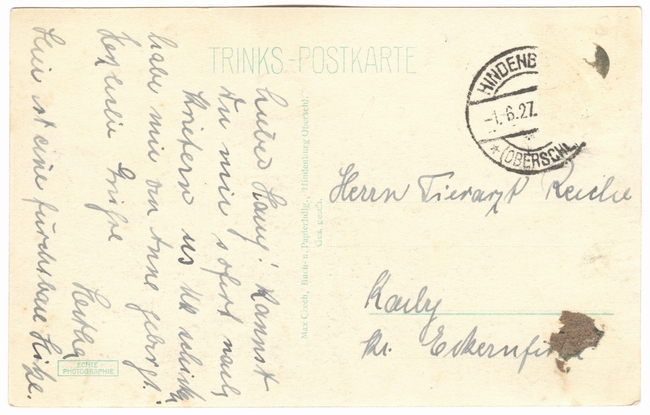 TRINKS-POSTKARTE
Lieber Hans! Kannst
Du mir sofort nach
schicken
habe mir von Anne geborgt.
Herzliche Grüße
Hertha
Hier ist eine furchtbare Hitze.
Max Czech, Buch- u. Papierhdlg., Hindenburg Oberschl.
Ges. gesch.
HINDENB
-1.6.27.
* (OBERSCHL.
Herrn Tierarzt Reiche
Karby
Kr. Eckernf
ECHTE
PHOTOGRAPHIE